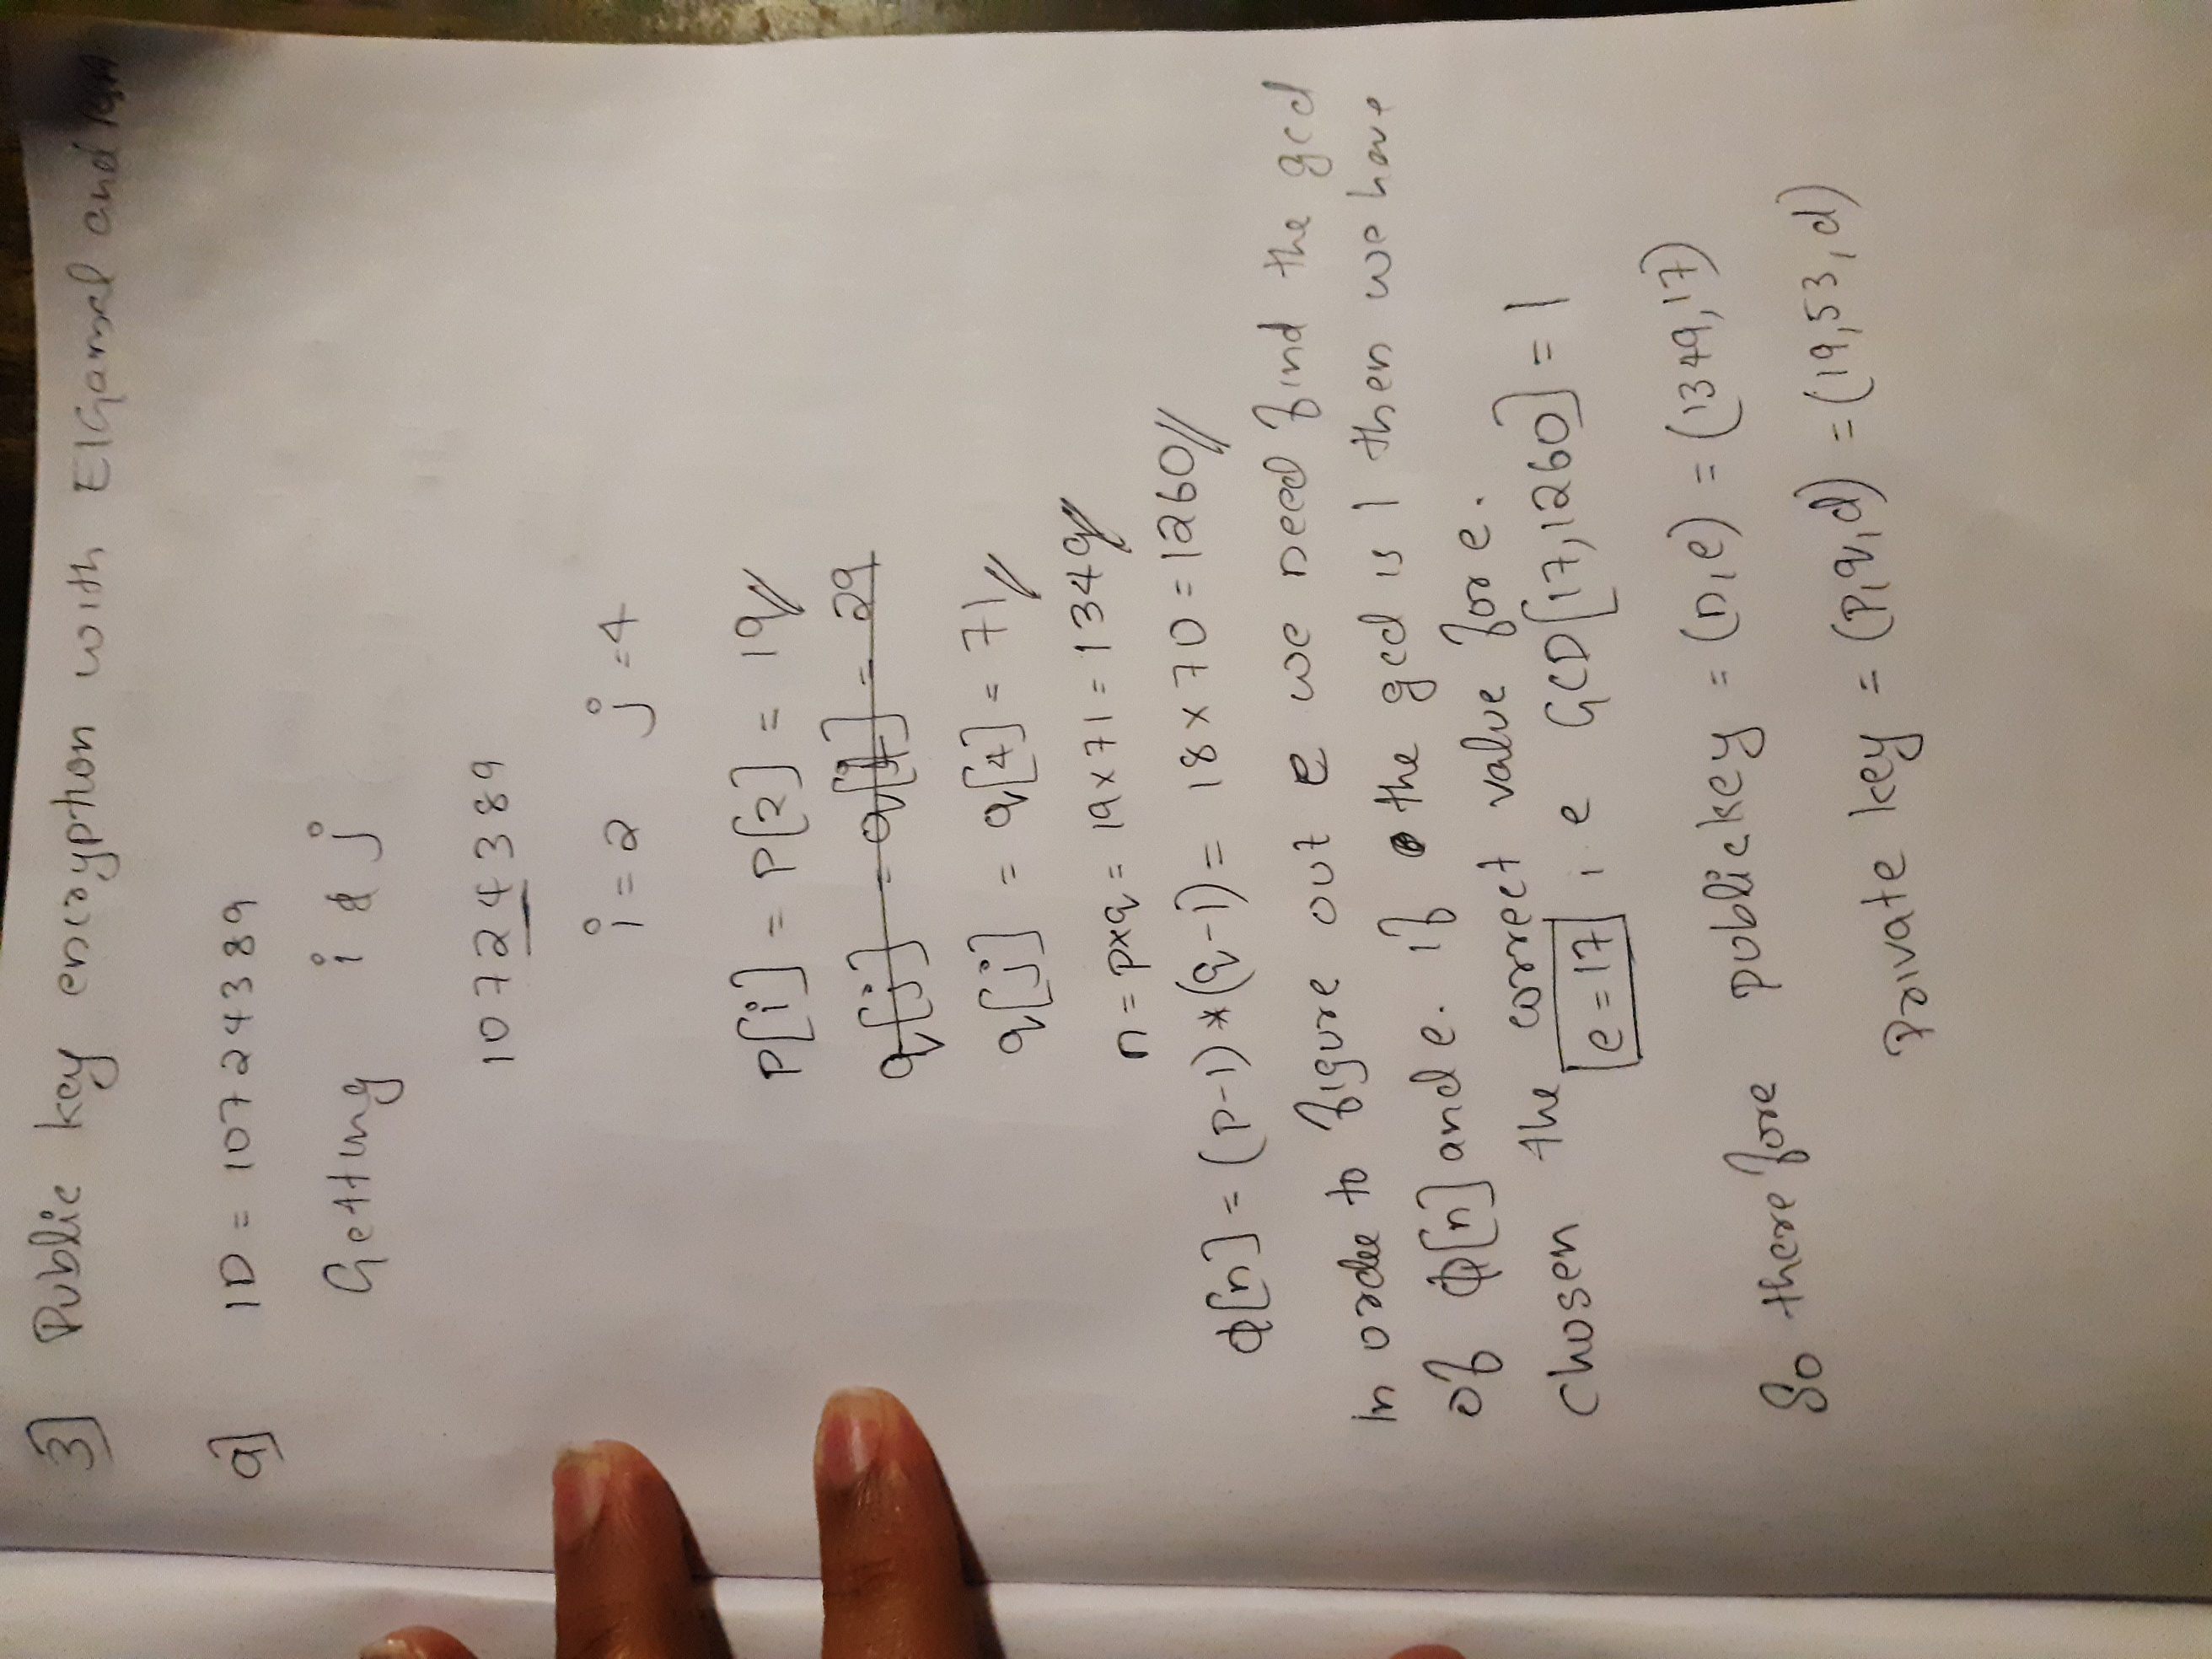 3] Public key encryption with ElGamal and RSA
a] ID = 10724389
Getting i & j
10724389
i = 2 j = 4
P[i] = P[2] = 19
q[j] = q[4] = 29
q[j] = q[4] = 71
n = p×q = 19×71 = 1349
Φ[n] = (P-1)*(q-1) = 18×70 = 1260
In order to figure out e we need find the gcd
of Φ[n] and e. if the gcd is 1 then we have
chosen the correct value for e.
e = 17 i.e GCD[17,1260] = 1
So therefore public key = (n,e) = (1349,17)
Private key = (P,q,d) = (19,53,d)